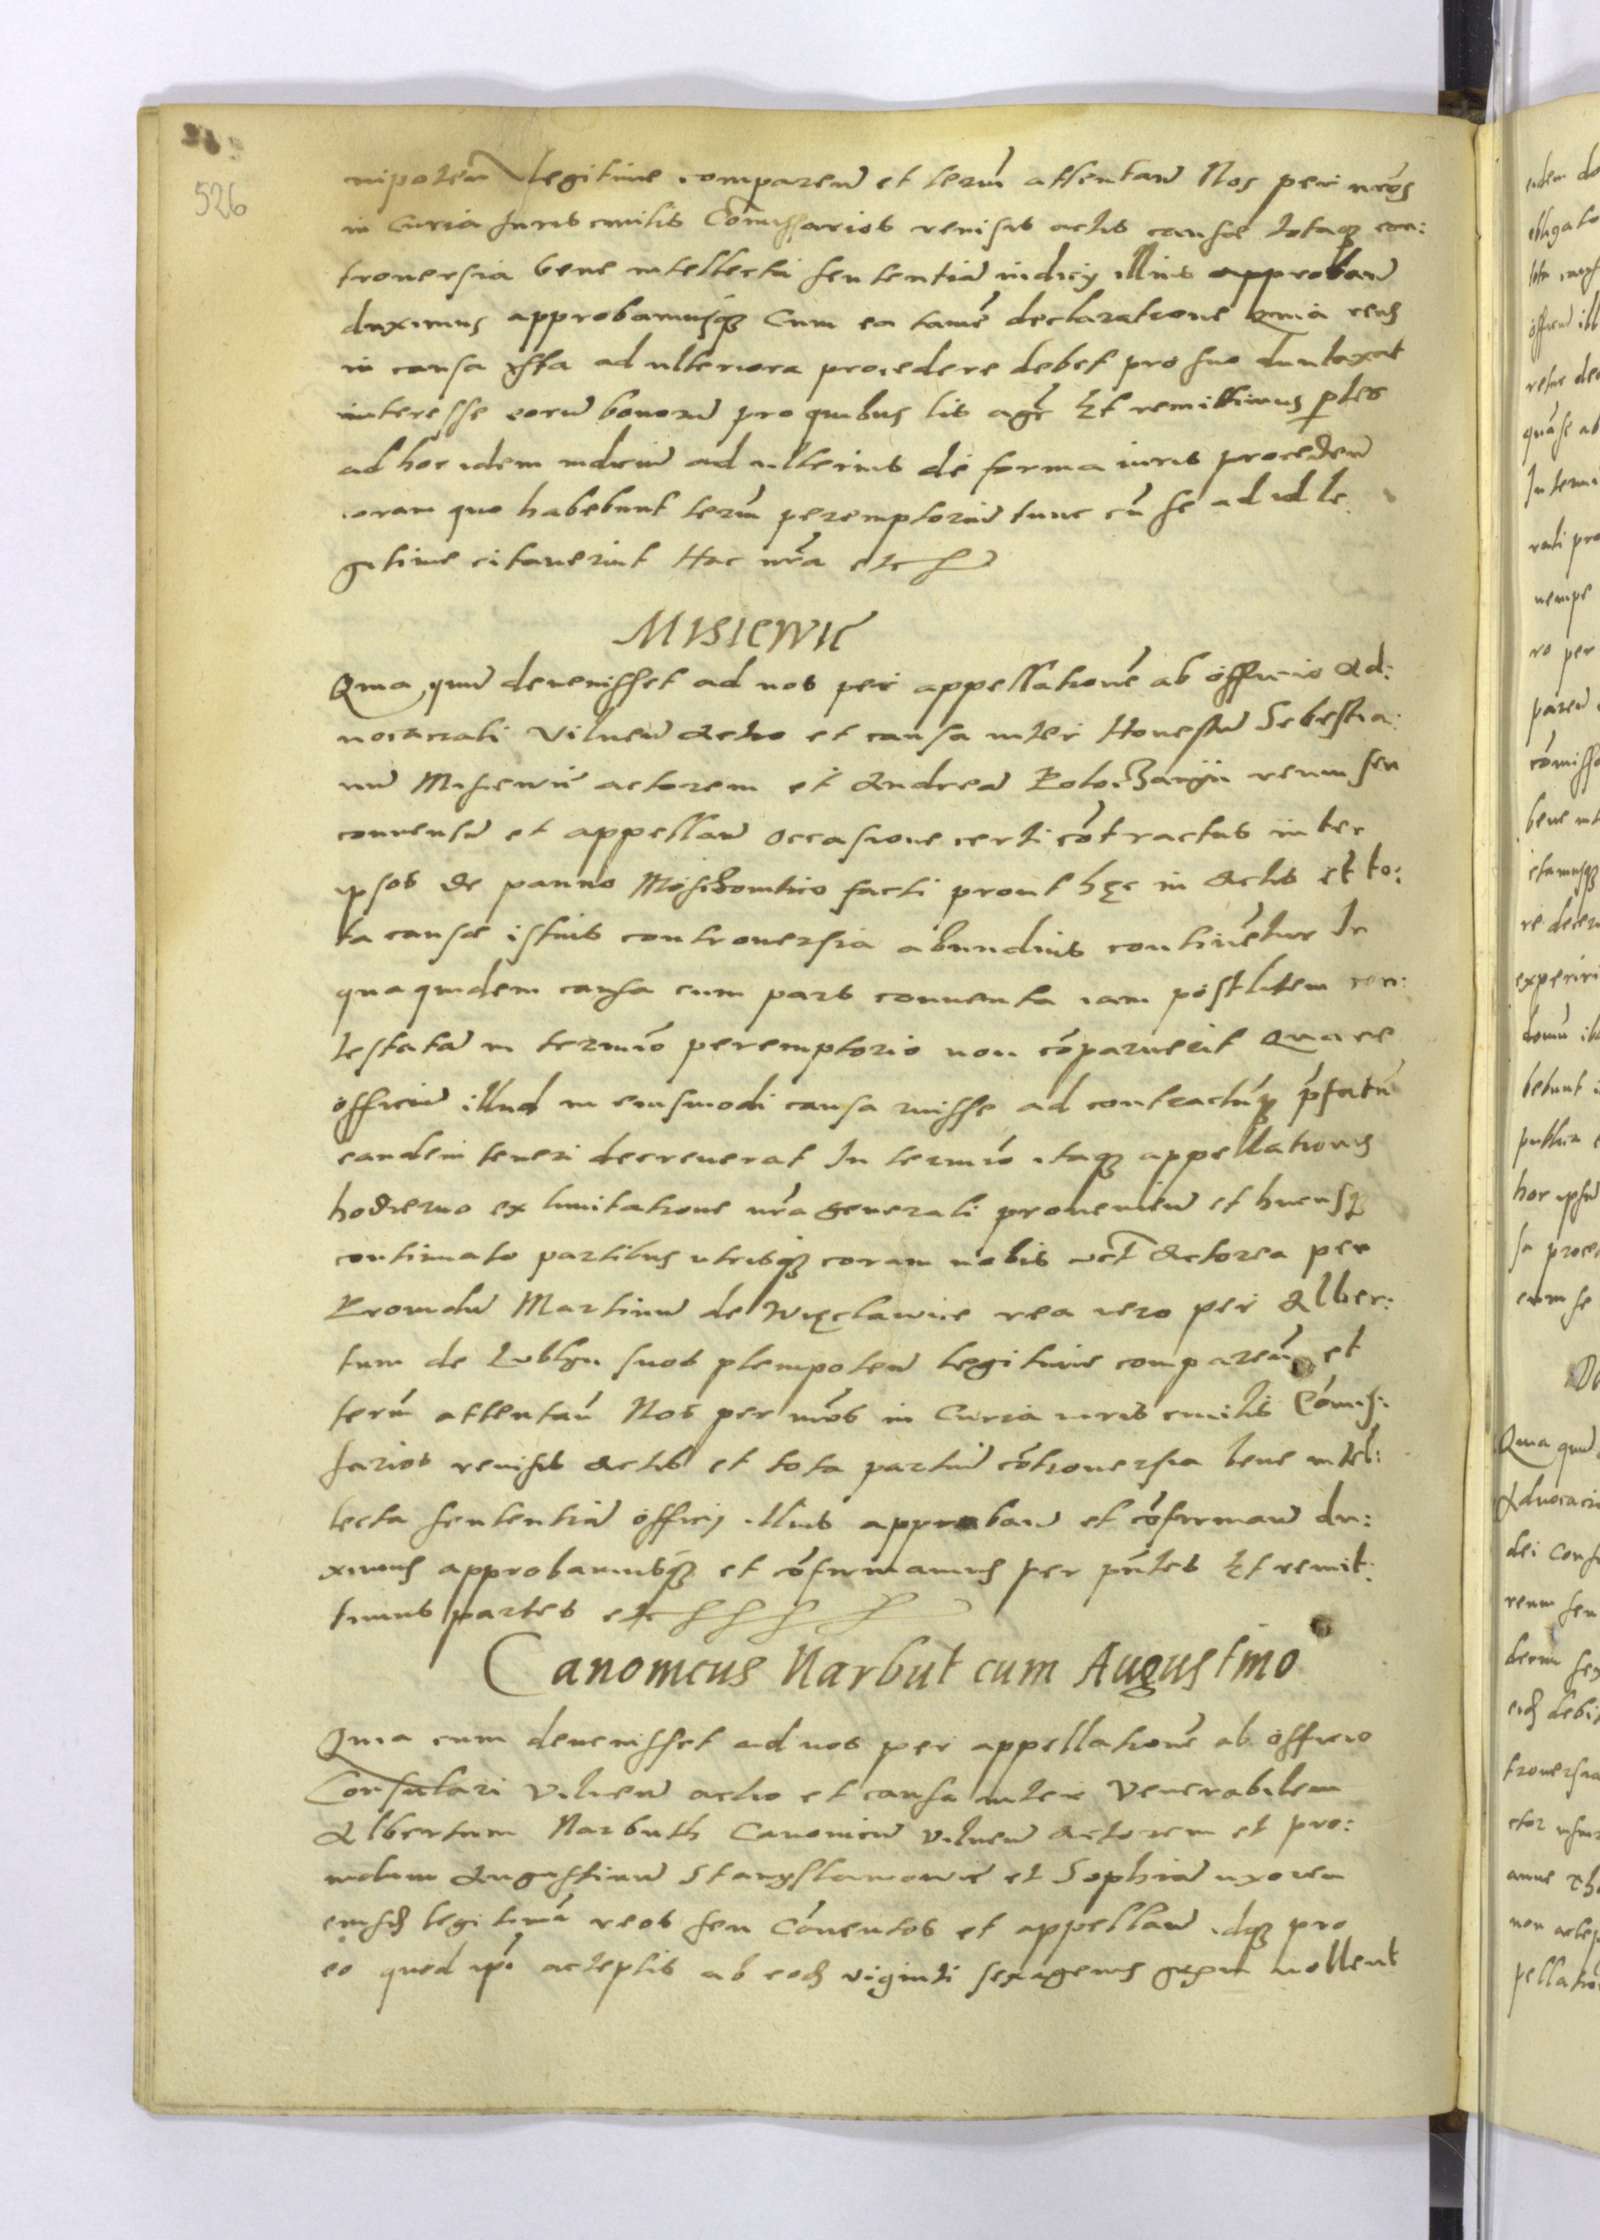 526
nipoten̄ legitime comparen̄ et term̄ attentan̄ Nos per nr̄os
in Curia Iuris civilis Com̄issarios revisis actis causæ totaq₃ con:
troversia bene intellecta sententiā iudicij illius approban̄
duximus approbamusq₃ Cum ea tamē declaratione Quia reus
in causa ista ad ulteriora procedere debet pro suo duntaxat
interesse eorū bonorū pro quibus lis agr̄ Et remittimus p̄tes
ad hoc idem iudiciū ad ulterius de forma iuris proceden̄
coram quo habebunt term̄ peremptoriū tunc cū se ad id le
gitime citaverint Hac nr̄a etc
MISIEWIC̄
Quia quū devenisset ad nos per appellationē ab officio Ad:
vocaciali Vilnen̄ Actio et causa inter Honestū Sebestia:
nū Misiewic̄ actorem et Andreā reum seu
conventū et appellan̄ occasione certi cōtractus inter
ipsos de panno facti prout hęc in Actis et to:
ta causæ istius controversia abundius continētur In
qua quidem causa cum pars conventa iam post litem con:
testatā in termīo peremptorio non cōparuerit Quare
officiū illud in eiusmodi causa ad contractūq₃ p̄fatū
eandem teneri decreverat In termīo itaq₃ appellationis
hodierno ex limitatione nr̄a generali provenien̄ et hucusq₃
continuato partibus utrisq₃ coram nobis Actorea per
Providū Martinū de Więclawice rea vero per Alber:
tum de Lublyn suos plenipoten̄ legitime comparen̄ et
term̄ attentan̄ Nos per nr̄os in Curia iuris civilis Cōmis:
sarios revisis Actis et tota partiū cōtroversia bene intel:
lecta sententiā officij illius approban̄ et cōfirman̄ du:
ximus approbamusq₃ et cōfirmamus per p̄ntes Et remit:
timus partes etc
Canonicus Narbut cum Augustino
Quia cum devenisset ad nos per appellationē ab officio
Consulari Vilnen̄ actio et causa inter Venerabilem
Albertum Narbuth Canonicū Vilnen̄ Actorem et pro:
vidum Augustinū Stanyslawowic̄ et Sophiā uxorem
eiusd̄ legitimā reos seu Cōventos et appellan̄ idq₃ pro
eo quod ip̄i acceptis ab eod̄ viginti sexagenis nollent